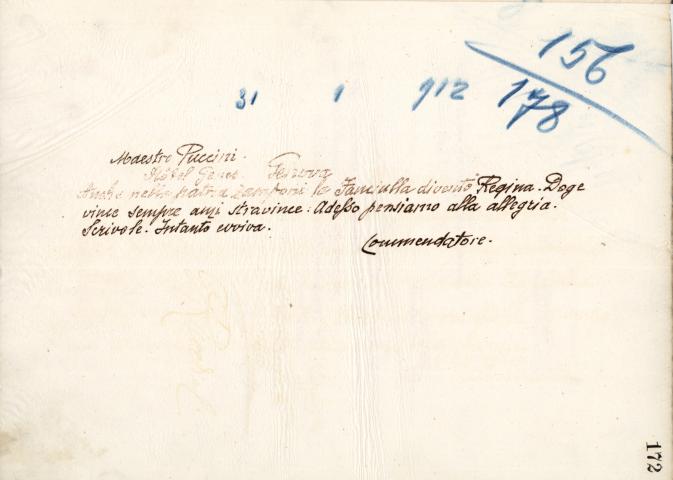 156
31 1 912 178
Maestro Puccini.
Hôtel Genes Genova
Anche nella patria Zambonii la Fanciulla diventò Regina. Doge
vince sempre anzi stravince: Adesso pensiamo alla allegria.
Scrivole. Intanto evviva.
Commendatore.
172